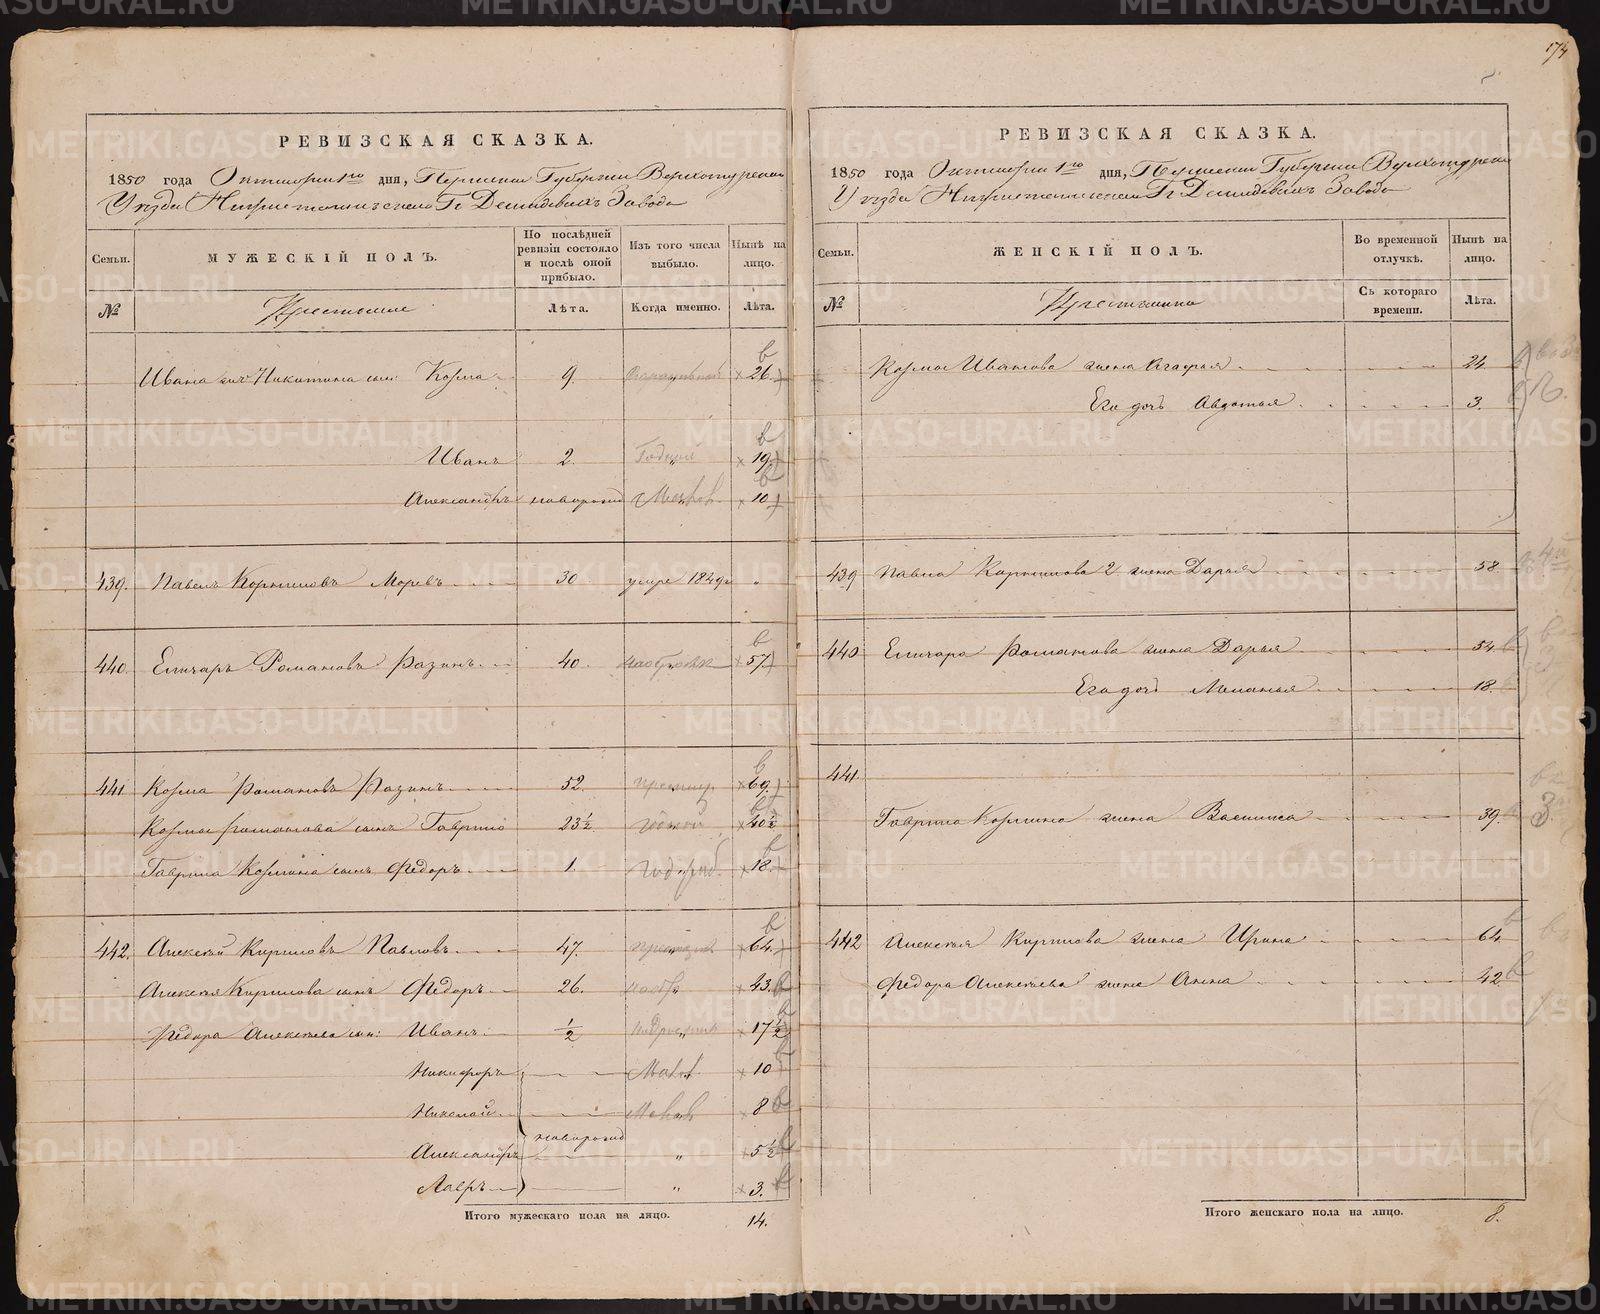 174
РЕВИЗСКАЯ СКАЗКА.
1850 года Октября 1го дня, Пермской Губернии Верхотурскаго
Уѣзда Нижнетагильскаго Гг Демидовыхъ Завода
Семьи.
МУЖЕСКІЙ ПОЛЪ.
По послѣдней ревизіи состояло и послѣ оной прибыло.
Изъ того числа выбыло.
Нынѣ на лицо.
№
Крестьяне
Лѣта.
Когда именно.
Лѣта.
Ивана Никитина сын: Козма 9. 26.
Иванъ 2. 19.
Александръ новорожд 10
439. Павелъ Корниловъ 30 умре 1849 "
440. Елизаръ Романовъ Разинъ 40. 57
441 Козма Романовъ Разинъ 52. 69.
Козмы Романова сынъ Гаврило 23 1/2 40 1/2
Гаврила Козмина сынъ Федоръ 1. 18.
442. Алексѣй Кириловъ Павловъ 47. 64.
Алексѣя Кирилова сынъ Федоръ 26. 43.
Федора Алексѣева сын: Иванъ 1/2 17 1/2
Никифоръ 10
Николай 8
новорожд
Александръ " 5 1/2
Лавръ " 3.
Итого мужескаго пола на лицо. 14.
РЕВИЗСКАЯ СКАЗКА.
1850 года Октября 1го дня, Пермской Губернии Верхотурскаго
Уѣзда Нижнетагильскаго Гг Демидовыхъ Завода
Семьи.
ЖЕНСКІЙ ПОЛЪ.
Во временной отлучкѣ.
Нынѣ на лицо.
№
Крестьянки
Съ котораго времени.
Лѣта.
Козмы Иванова жена Агафья 24
Его дочь Авдотья 3.
439 Павла Корнилова 2 жена Дарья 58
440 Елизара Романова жена Дарья 54
Его дочь Маланья 18.
441
Гаврила Козмина жена Василиса 39.
442 Алексѣя Кирилова жена Ирина 64
Федора Алексѣева жена Анна 42
Итого женскаго пола на лицо. 8.
METRIKI.GASO-URAL.RU